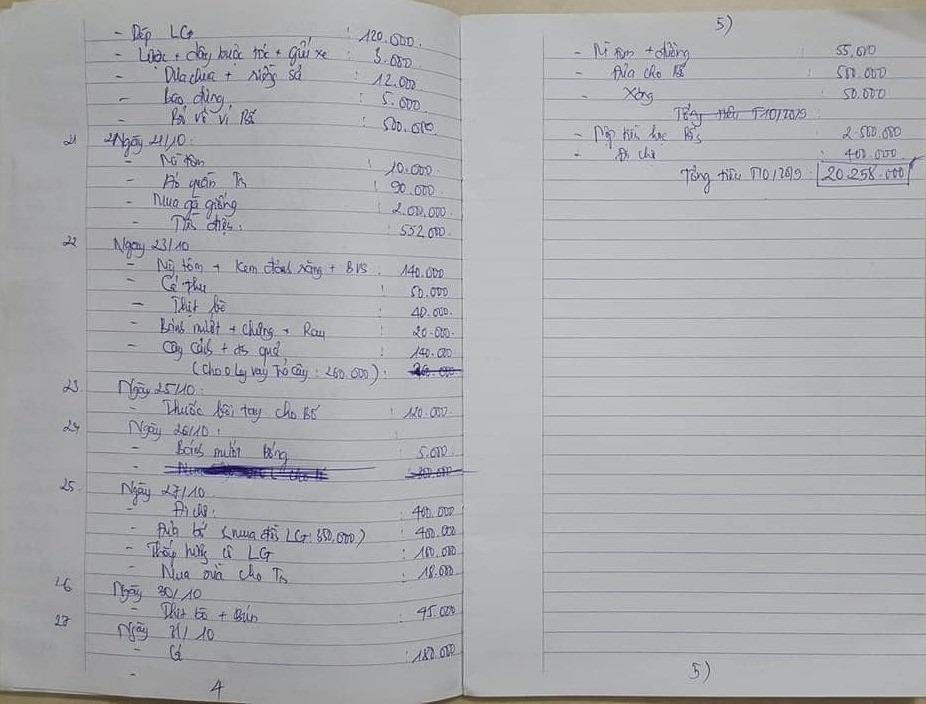 - Dép LG : 120.000.
- Lược + dây buộc tóc + gửi xe : 3.000.
- Dưa chua + riềng sả : 12.000
- Bao đựng : 5.000.
- Bố về ví Bố : 500.000.
21 Ngày 21/10:
- Mì tôm : 10.000
- Áo quần Tn : 90.000
- Mua gà giống : 2.000.000.
- Tiền điện : 552.000.
22 Ngày 23/10
- Mỳ tôm + Kem đánh răng + BVS : 140.000
- Cá thu : 50.000
- Thịt bò : 40.000
- Bánh mướt + chưng + Rau : 20.000
- Cây cảnh + quả : 140.000
(Cho O Ly vay trả cây : 260.000) :
23 Ngày 25/10:
- Thuốc bôi tay cho Bố : 120.000
24 Ngày 26/10 :
- Bánh mướt : 5.000
25. Ngày 27/10
- Đi chợ : 400.000
- Đưa bố (mua đồ LG: 350.000) : 400.000
- Thắp hương LG : 100.000
- Mua cho Tn : 18.000
26 Ngày 30/10
- Thịt bò + Bún : 45.000
27 Ngày 31/10
- Cá : 180.000
-
4
5)
- Mì tôm + đường : 55.000
- Đưa cho Bố : 500.000
- Xăng : 50.000
Tổng tiêu T10/2019 :
- Nộp tiền học : 2.500.000
- Đi chợ : 400.000
Tổng tiêu T10/2019 : 20.258.000
5)